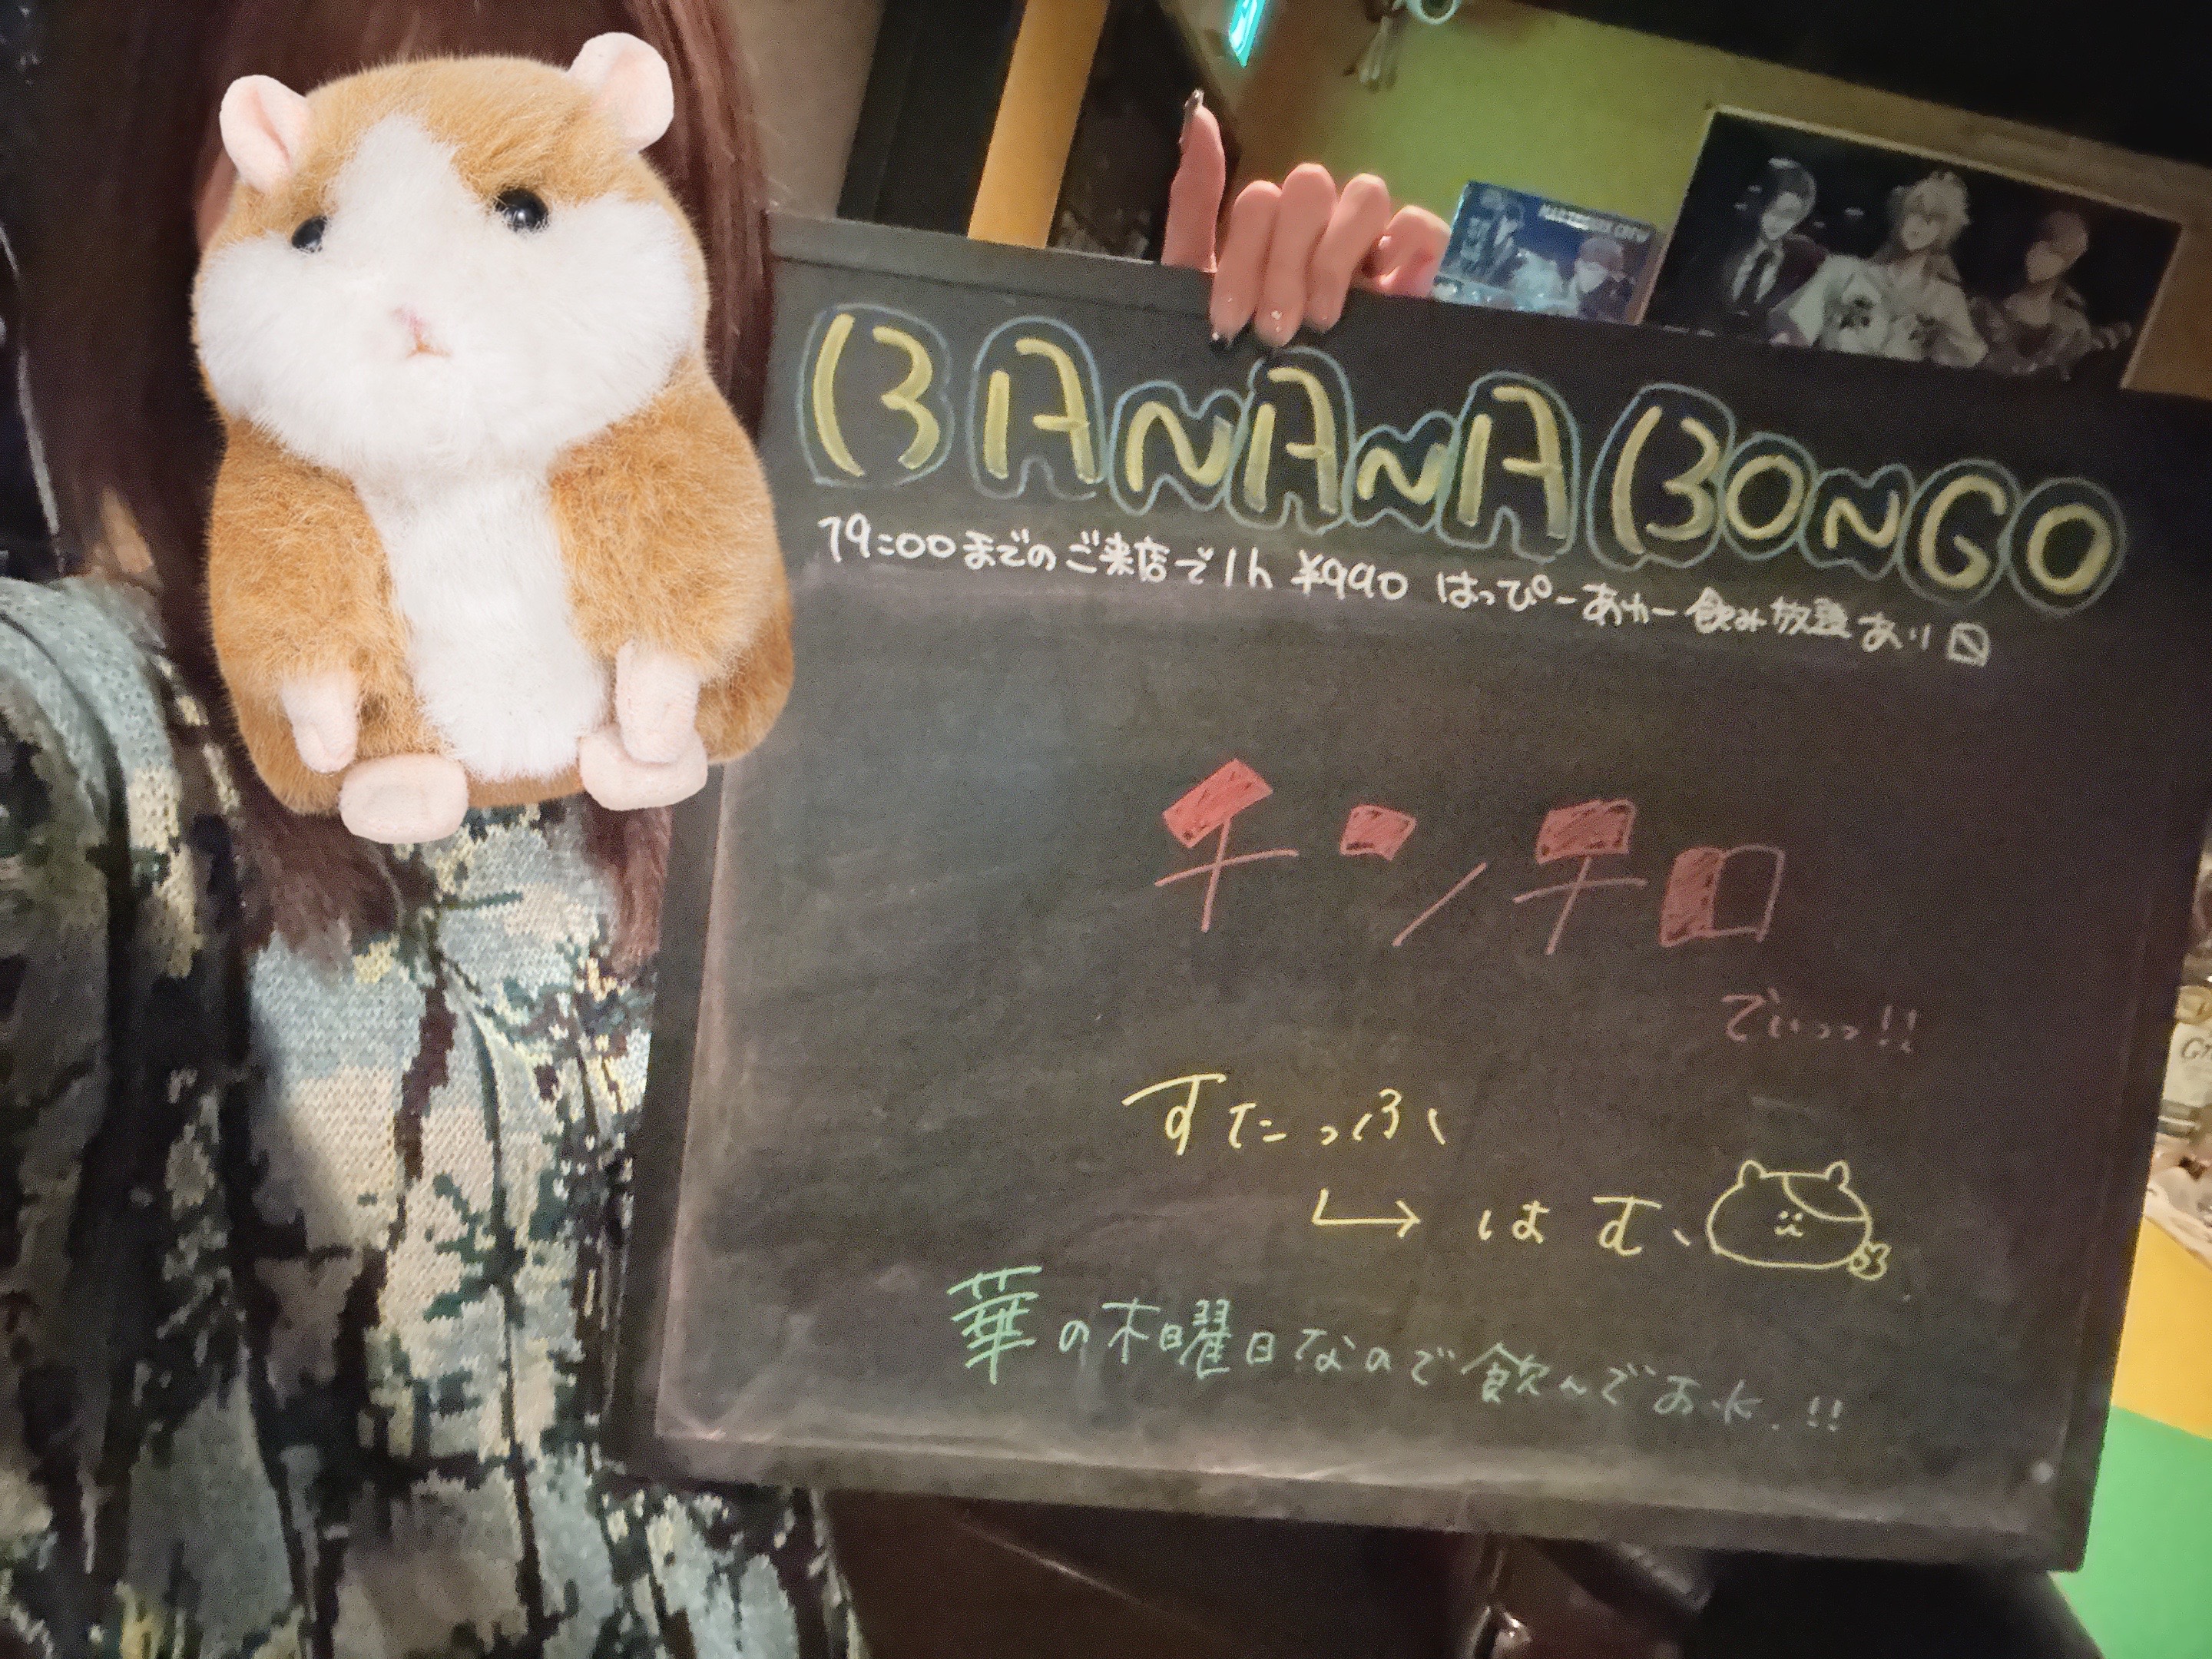 BANANA BONGO
19:00までのご来店で1h ¥990 はっぴーあわー飲み放題あり
チンチロ
でぃっっ!!
すたっふ
↳ はむ、
華の木曜日なので飲んでお水.!!